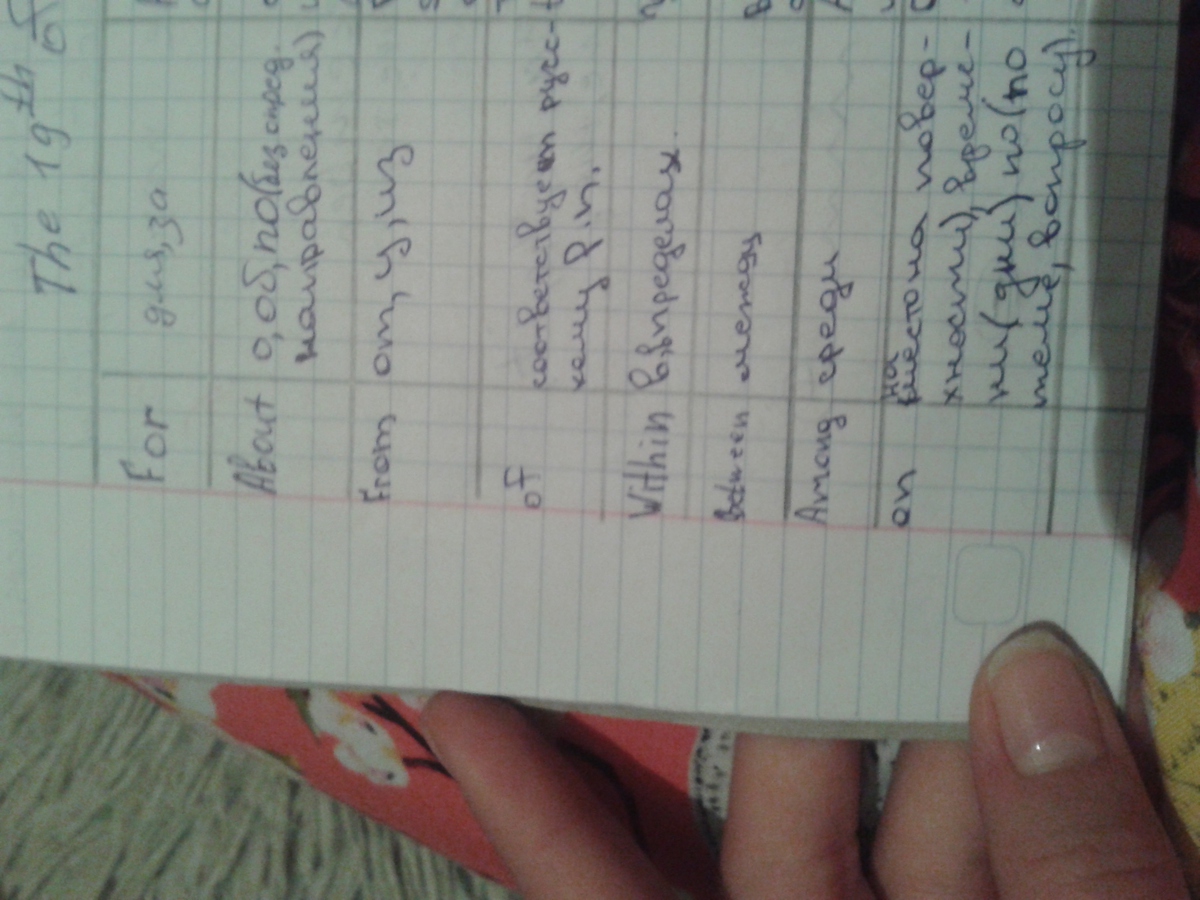 The 19th of
For для, за
About о, об, по (без опред.
направления)
From от, у, из
of соответствует русс-
кому р.п.
Within в, в пределах.
Between между
Among среди
on на
место на повер-
хности), време-
ни (дни) по (по
теме, вопросу).